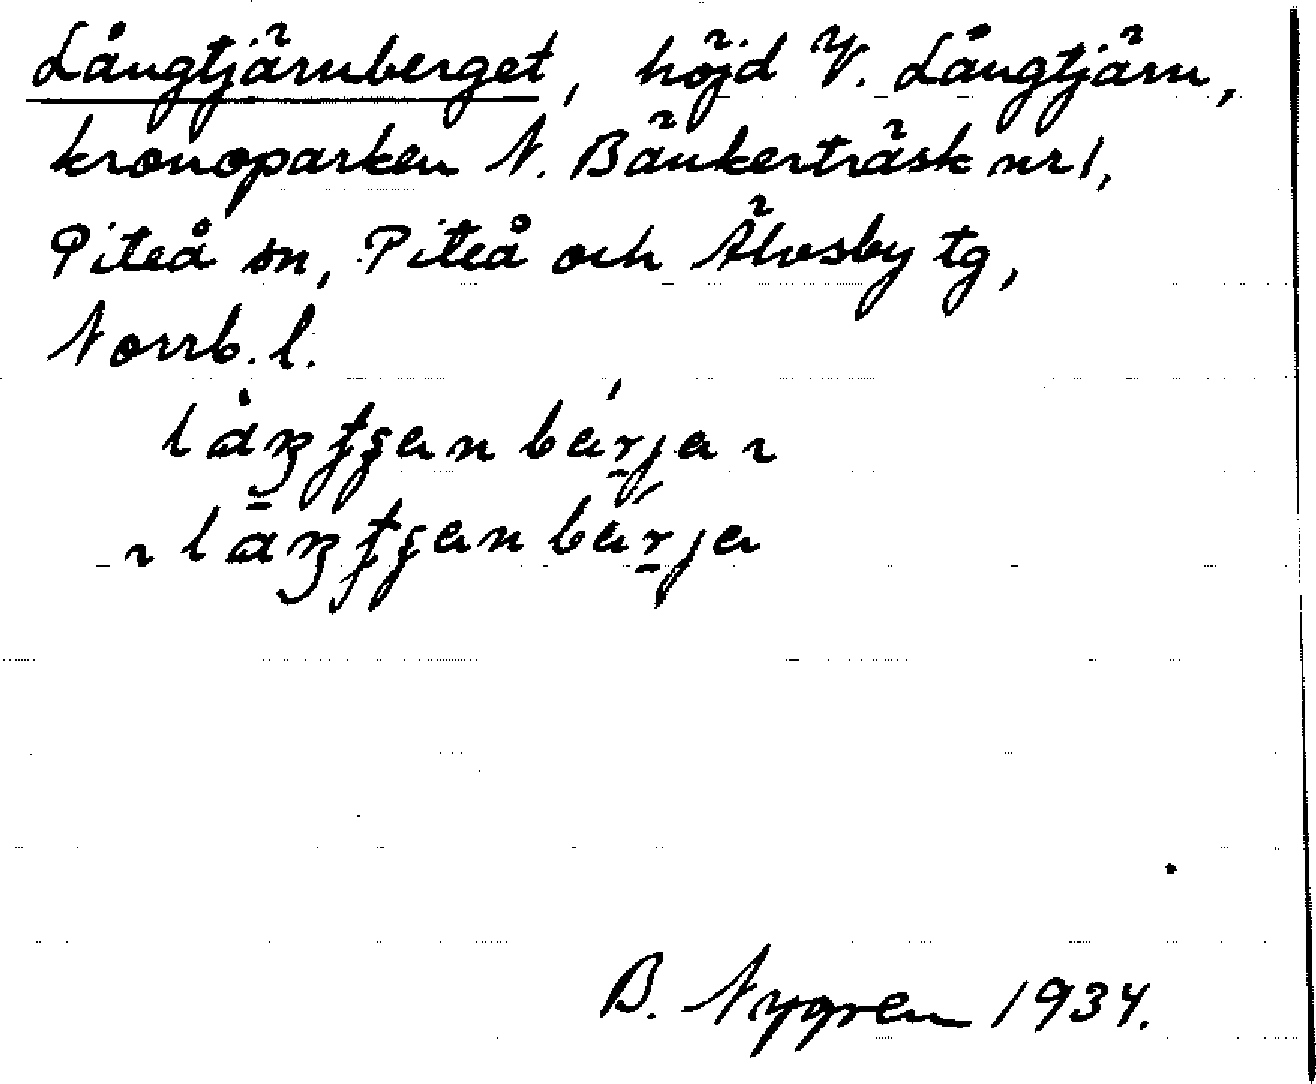 Långtjärnberget, höjd V. Långtjärn,
kronoparken N. Bänkerträsk nr 1,
Piteå sn, Piteå och Älvsby tg,
Norrb. l.
B. Nygren 1934.